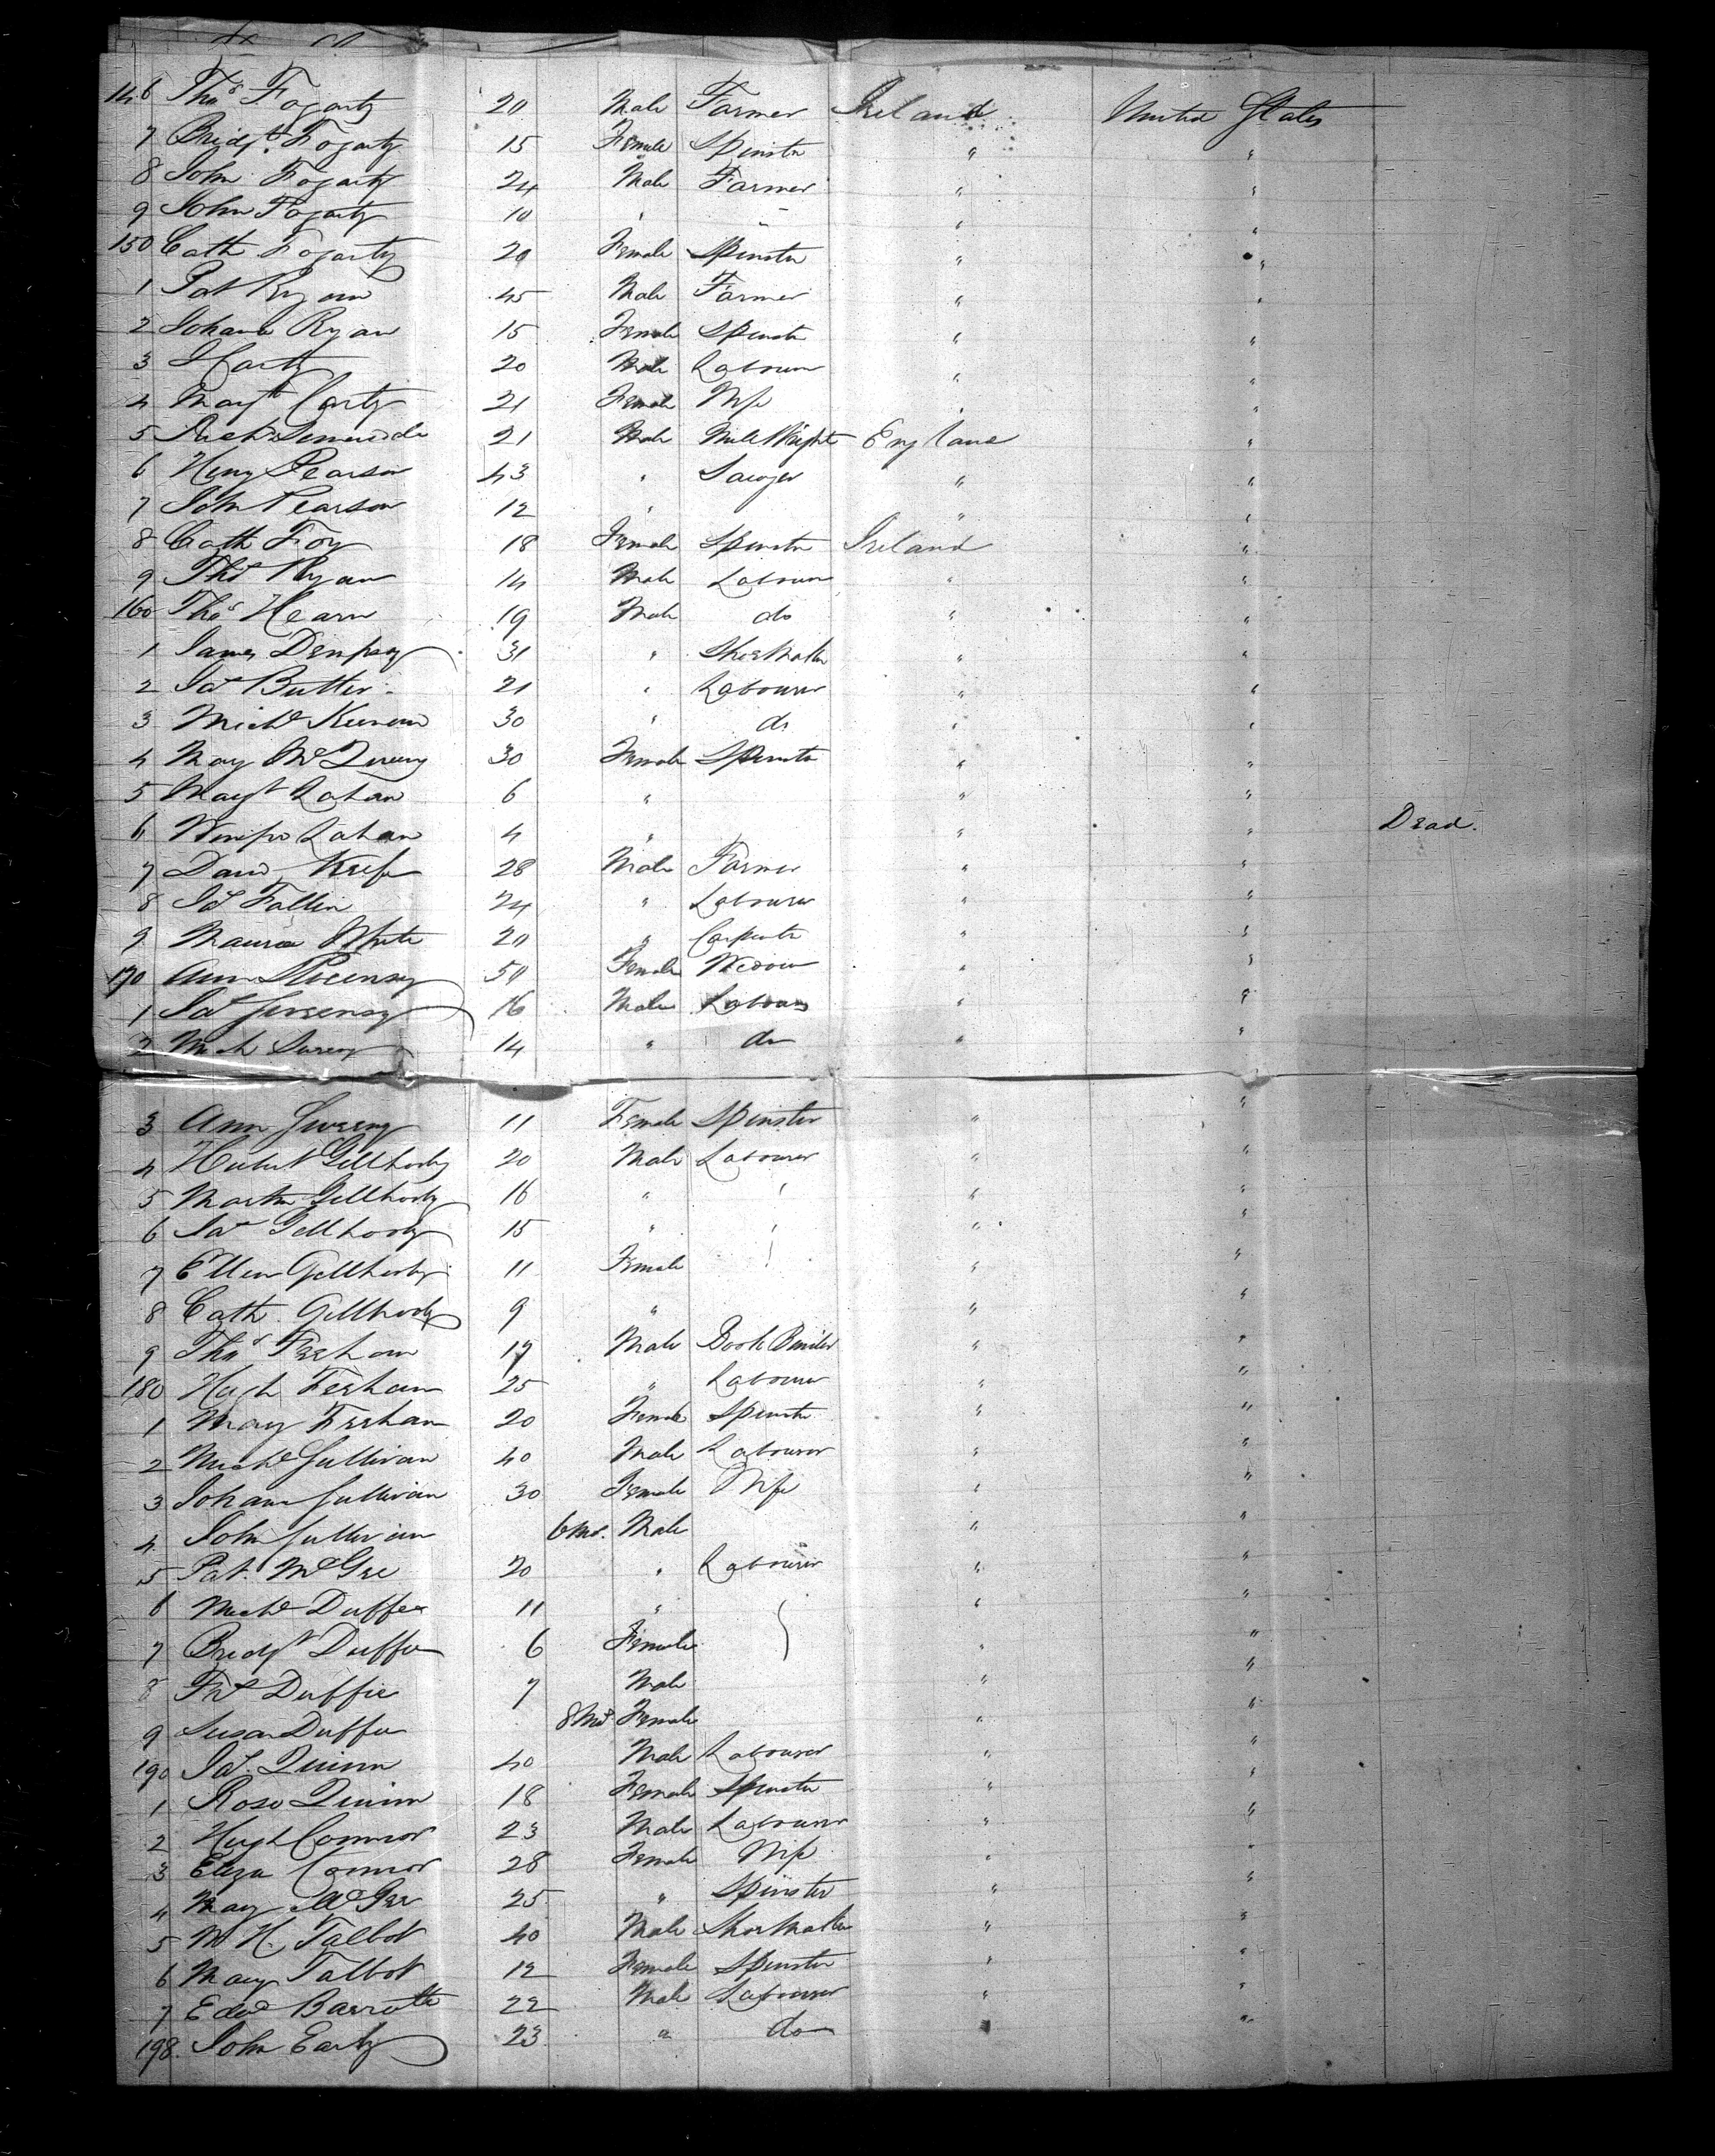 146 Thos Fogarty 20 Male Farmer Ireland United States
7 Bridgt. Fogarty 15 Female Spinster " "
8 John Fogarty 24 Male Farmer " "
9 John Fogarty 10 " " " "
150 Cath Fogarty 20 Female Spinster " "
1 Pat Ryan 45 Male Farmer " "
2 Johana Ryan 15 Female Spinster " "
3 J Carty 20 Male Labourer " "
4 Margt Carty 21 Female Wife " "
5 Richd 21 Male Mill Wright England "
6 Henry Pearson 43 " Sawyer " "
7 John Pearson 12 " " "
8 Cath Foy 18 Female Spinster Ireland "
9 Thos Ryan 14 Male Labourer " "
160 Thos Hearn 19 Male do " "
1 James Dempsey 31 " Shoe Maker " "
2 Jas Butler 21 " Labourer " "
3 Michl 30 " do " "
4 Mary Mc 30 Female Spinster " "
5 Margt Lahan 6 " " "
6 Lahan 4 " " " Dead.
7 David Keefe 28 Male Farmer " "
8 Jas Fallin 24 " Labourer " "
9 Maurice White 20 " Carpenter " "
170 Ann 50 Female Widow " "
1 Jas 16 Male Labourer " "
2 Mich 14 " do " "
3 Ann 11 Female Spinster " "
4 Hubert Gillhooly 20 Male Labourer " "
5 Martin Gillhooly 16 " " " "
6 Jas Gillhooly 15 " " " "
7 Ellen Gillhooly 11 Female " "
8 Cath. Gillhooly 9 " " "
9 Thos Feehan 19 Male Book Binder " "
180 Hugh Feehan 25 " Labourer " "
1 Mary Feehan 20 Female Spinster " "
2 Michl Sullivan 40 Male Labourer " "
3 Johana Sullivan 30 Female Wife " "
4 John Sullivan 6 Mo. Male " "
5 Pat. McGee 20 " Labourer " "
6 Michl Duffee 11 " " "
7 Bridgt Duffee 6 Female " "
8 Duffie 7 Male " "
9 Susan Duffee 8 Mos Female " "
190 Jas. Quinn 40 Male Labourer " "
1 Rose Quinn 18 Female Spinster " "
2 Hugh Connor 23 Male Labourer " "
3 Eliza Connor 28 Female Wife " "
4 Mary McGee 25 " Spinster " "
5 H. Talbot 40 Male Shoe Maker " "
6 Mary Talbot 12 Female Spinster " "
7 Edwd Barrette 22 Male Labourer " "
198. John Early 23 " do " "